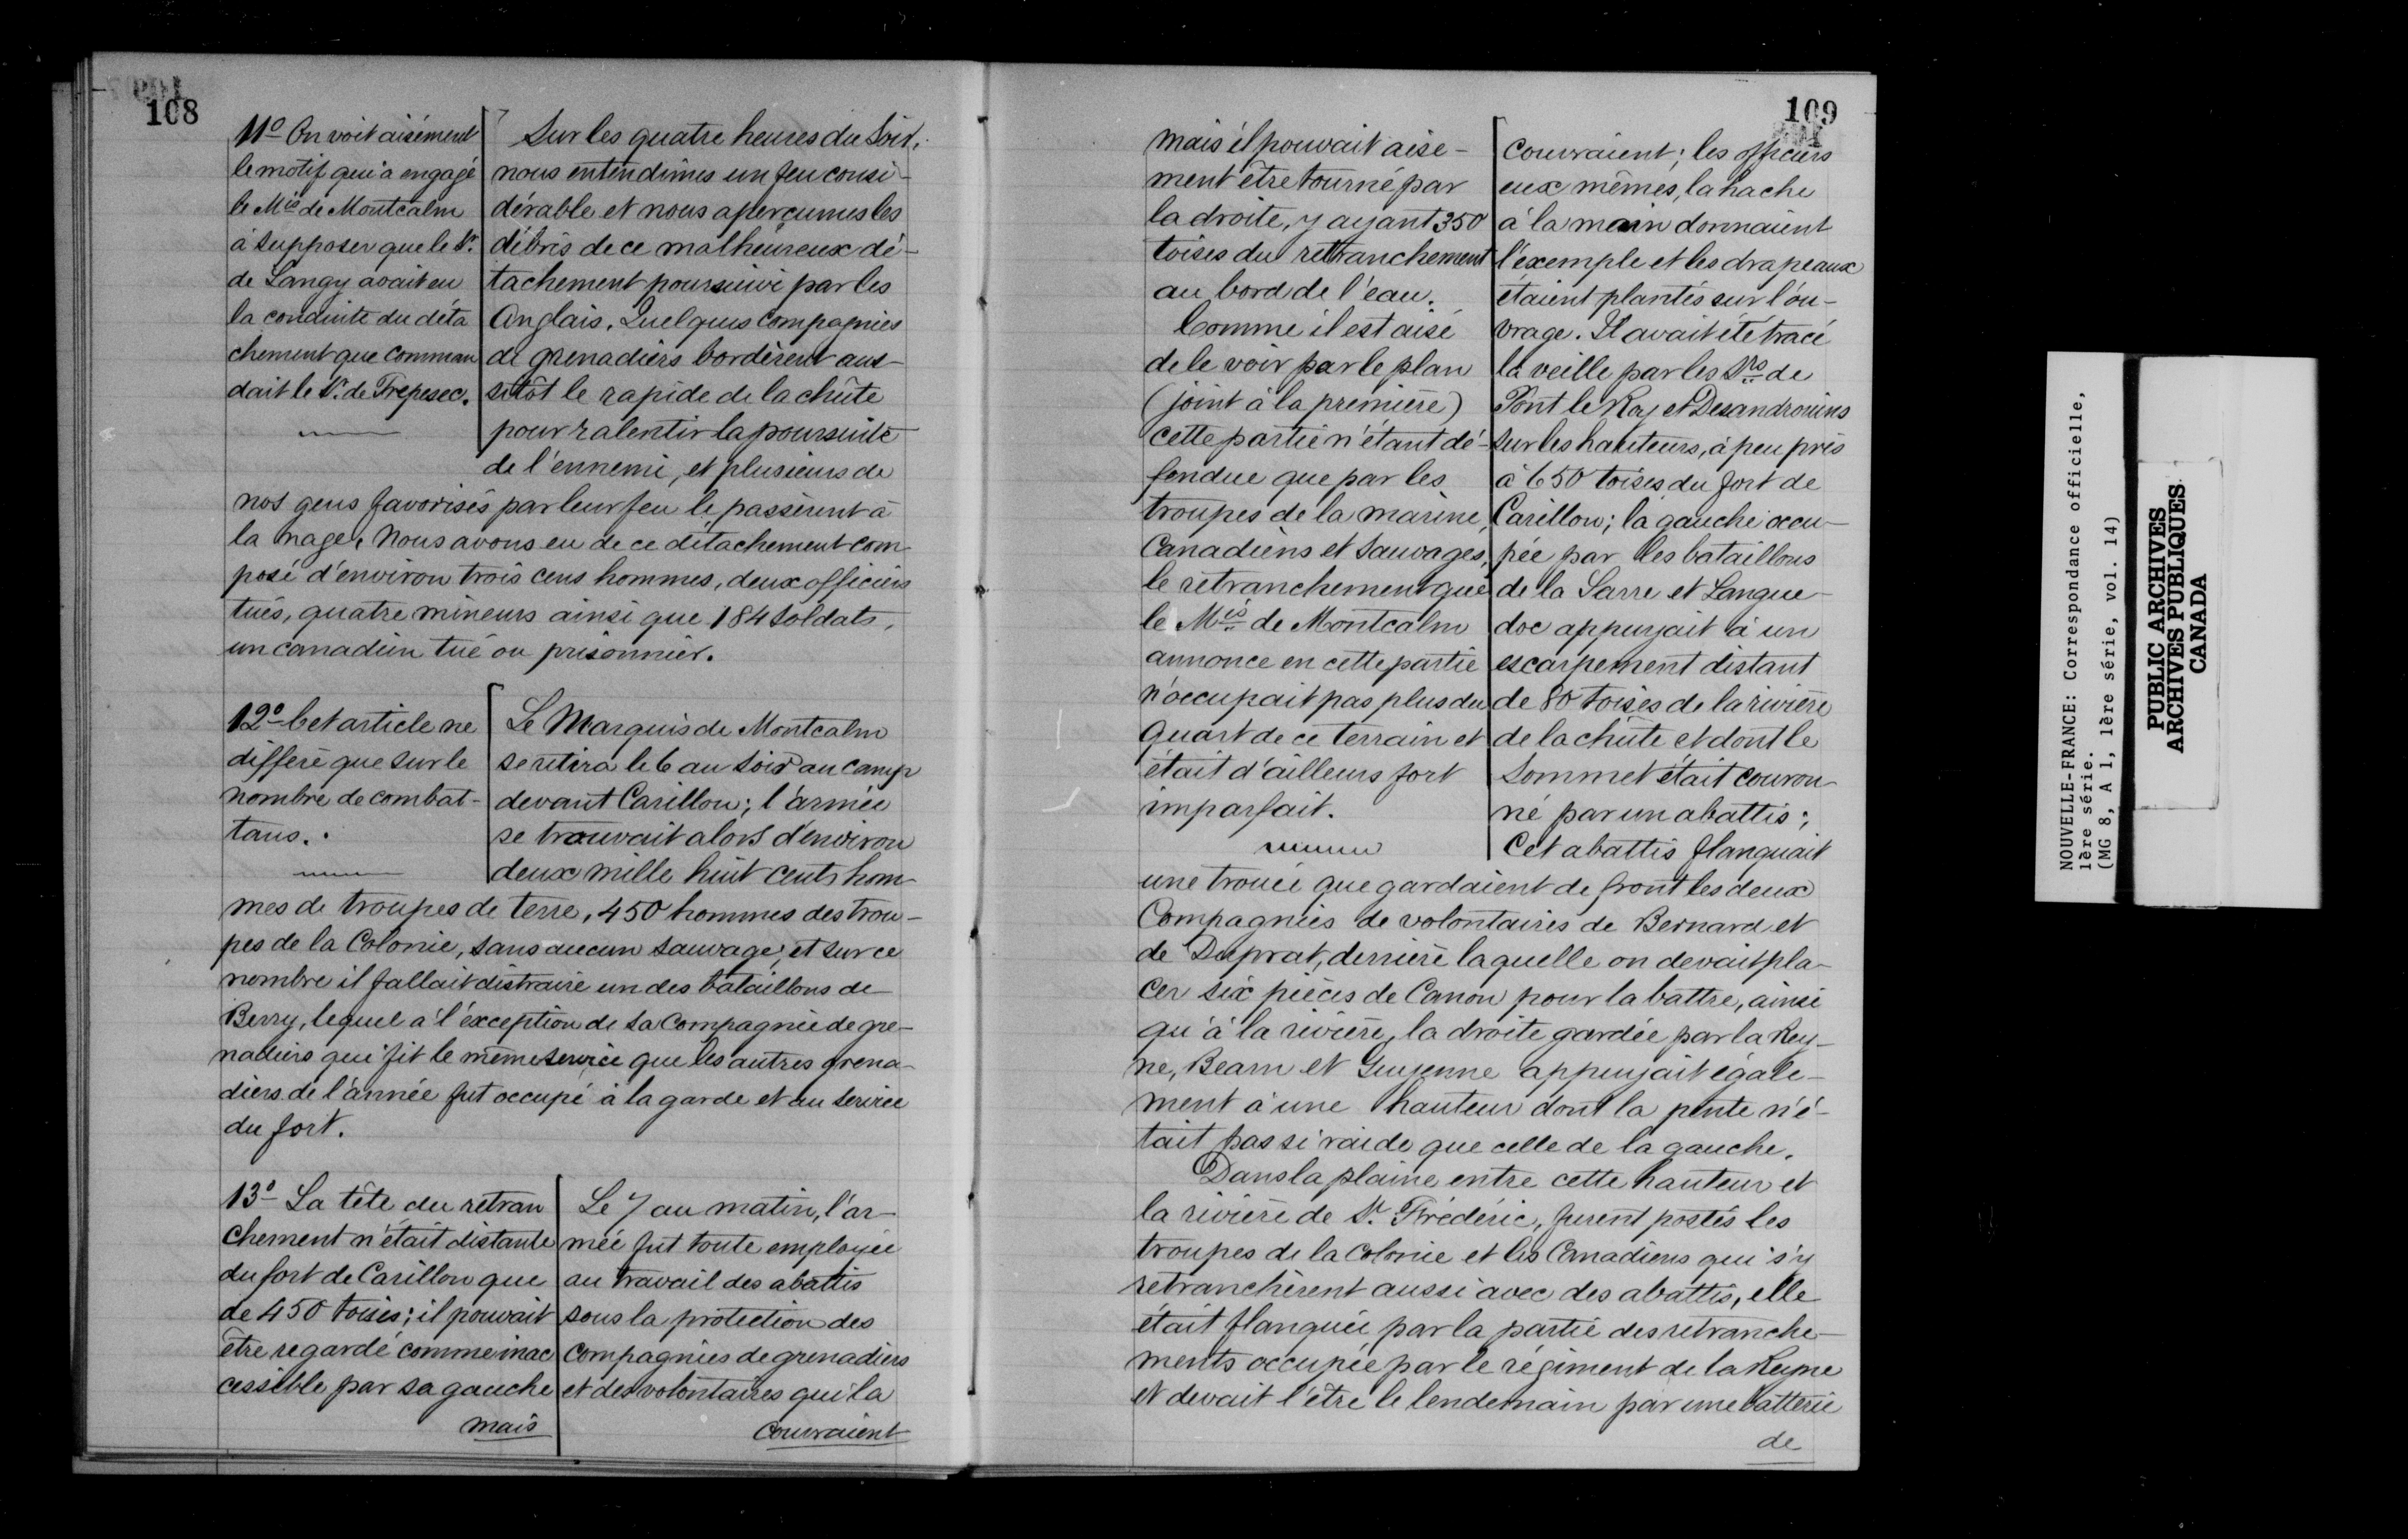 108
11º On voit aisément
le motif qui a engagé
le Mis de Montcalm
à supposer que le Sr.
de Langy avait eu
la conduite du déta
chement que comman
dait le Sr. de Trepesec.
Sur les quatre heures du Soir,
nous entendimes un feu consi-
dérable et nous aperçumes les
débris de ce malheureux dé-
tachement poursuivi par les
Anglais. Quelques Compagnies
de grenadiers bordèrent aus-
sitôt le rapide de la chûte
pour ralentir la poursuite
de l'ennemi, et plusieurs de
nos gens favorisés par leur feu le passèrent à
la nage. Nous avons eu de ce détachement com
posé d'environ trois cens hommes, deux officiers
tués, quatre mineurs ainsi que 184 Soldats,
un canadien tué ou prisonnier.
12º Cet article ne
différe que sur le
nombre de combat-
tans.
Le Marquis de Montcalm
se retira le 6 au Soir au camp
devant Carillon; l'armée
se trouvait alors d'environ
deux mille huit cents hom-
mes de troupes de terre, 450 hommes des trou-
pes de la Colonie, sans aucun sauvage; et sur ce
nombre il fallait distraire un des bataillons de
Berry, lequel a l'éxception de sa Compagnie de gre-
nadiers qui fit le même service que les autres grena-
diers de l'année fut occupé à la garde et au service
du fort.
13º La tête du retran
chement n'était distante
du fort de Carillon que
de 450 toises; il pouvait
être regardé comme inac
cessible par sa gauche
mais
Le 7 au matin, l'ar-
mée fut toute employée
au travail des abattis
sous la protection des
Compagnies de grenadiers
et des volontaires qui la
couvraient
109
mais il pouvait aise-
ment être tourné par
la droite, y ayant 350
toises du retranchement
au bord de l'eau.
Comme il est aisé
de le voir par le plan
(joint à la première)
cette partie n'étant dé-
fendue que par les
troupes de la marine,
Canadiens et Sauvages,
le retranchement que
le Mis de Montcalm
annonce en cette partie
n'occupait pas plus du
quart de ce terrain et
était d'ailleurs fort
imparfait.
couvraient; les officiers
eux mêmes, la hache
à la main donnaient
l'éxemple et les drapeaux
étaient plantés sur l'ou-
vrage. Il avait été tracé
la veille par les Srs de
Pont le Roy et Desandrouins
sur les hauteurs, à peu près
à 650 toises du fort de
Carillon; la gauche occu-
pée par les bataillons
de la Sarre et Langue-
doc appuyait à un
escarpement distant
de 80 toises de la rivière
de la chûte et dont le
Sommet était couron-
né par un abattis;
Cet abattis flanquait
une trouée que gardaient de front les deux
Compagnies de volontaires de Bernard et
de Duprat, derrière laquelle on devait pla-
cer six pièces de Canon pour la battre, ainsi
qu'à la rivière, la droite gardée par la Rey-
ne, Bearn et Guyenne appuyait égale-
ment à une hauteur dont la pente n'é-
tait pas si raide que celle de la gauche.
Dans la plaine entre cette hauteur et
la rivière de St. Frédéric, furent postés les
troupes de la Colonie et les Canadiens qui s'y
retranchèrent aussi avec des abattis, elle
était flanquée par la partie des retranche-
ments occupée par le régiment de la Reyne
et devait l'être le lendemain par une batterie
de
NOUVELLE-FRANCE: Correspondance officielle,
1ère série.
(MG 8, A 1, 1ère série, vol. 14)
PUBLIC ARCHIVES
ARCHIVES PUBLIQUES
CANADA